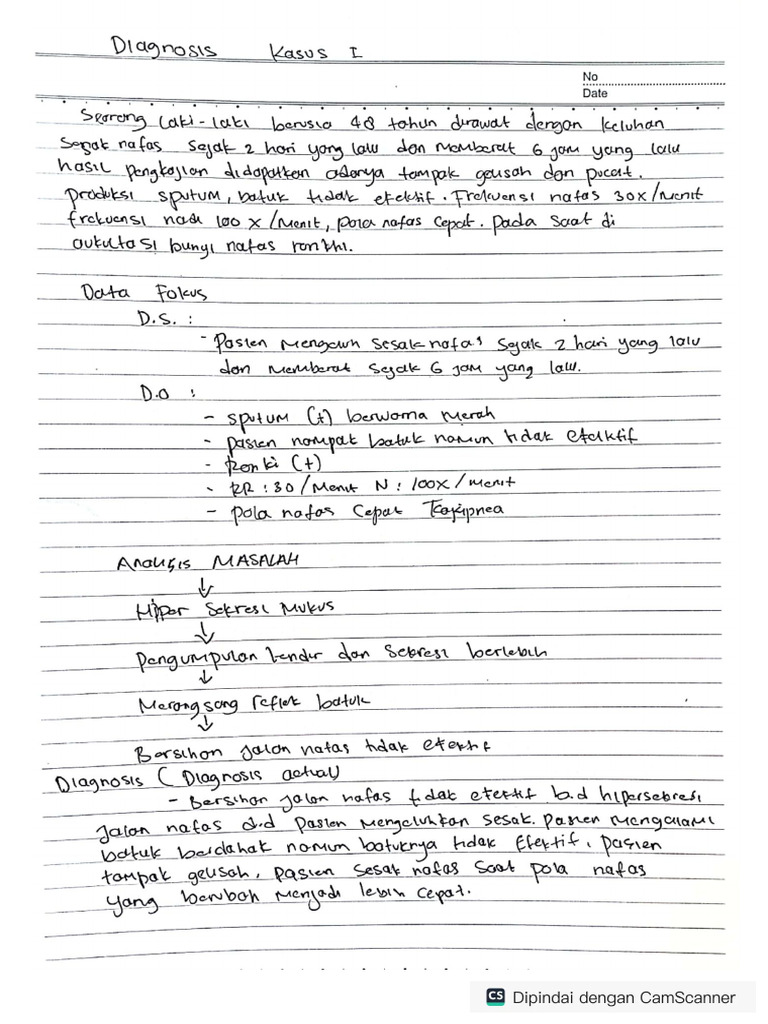 Diagnosis Kasus I
No
Date
Seorang laki-laki berusia 48 tahun dirawat dengan keluhan
Sesak nafas sejak 2 hari yang lalu dan memberat 6 jam yang lalu
hasil pengkajian didapatkan adanya tampak gelisah dan pucat.
produksi sputum, batuk tidak efektif. Frekuensi nafas 30x/menit
frekuensi nadi 100 x/menit, pola nafas cepat. pada saat di
aukultasi bunyi nafas ronkhi.
Data Fokus
D.S. :
- Pasien mengeluh sesak nafas sejak 2 hari yang lalu
dan memberat sejak 6 jam yang lalu.
D.O :
- sputum (+) berwarna merah
- pasien nampak batuk namun tidak efektif
- Ronki (+)
- RR : 30/menit N : 100x/menit
- pola nafas cepat
Analisis MASALAH
↓
Hiper Sekresi Mukus
↓
Pengumpulan lendir dan sekresi berlebih
↓
Merangsang reflek batuk
↓
Bersihan jalan nafas tidak efektif
Diagnosis (Diagnosis actual)
- Bersihan jalan nafas tidak efektif b.d hipersekresi
jalan nafas d.d pasien mengeluhkan sesak. pasien mengalami
batuk berdahak namun batuknya tidak efektif, pasien
tampak gelisah, pasien sesak nafas saat pola nafas
yang berubah menjadi lebih cepat.
CS Dipindai dengan CamScanner